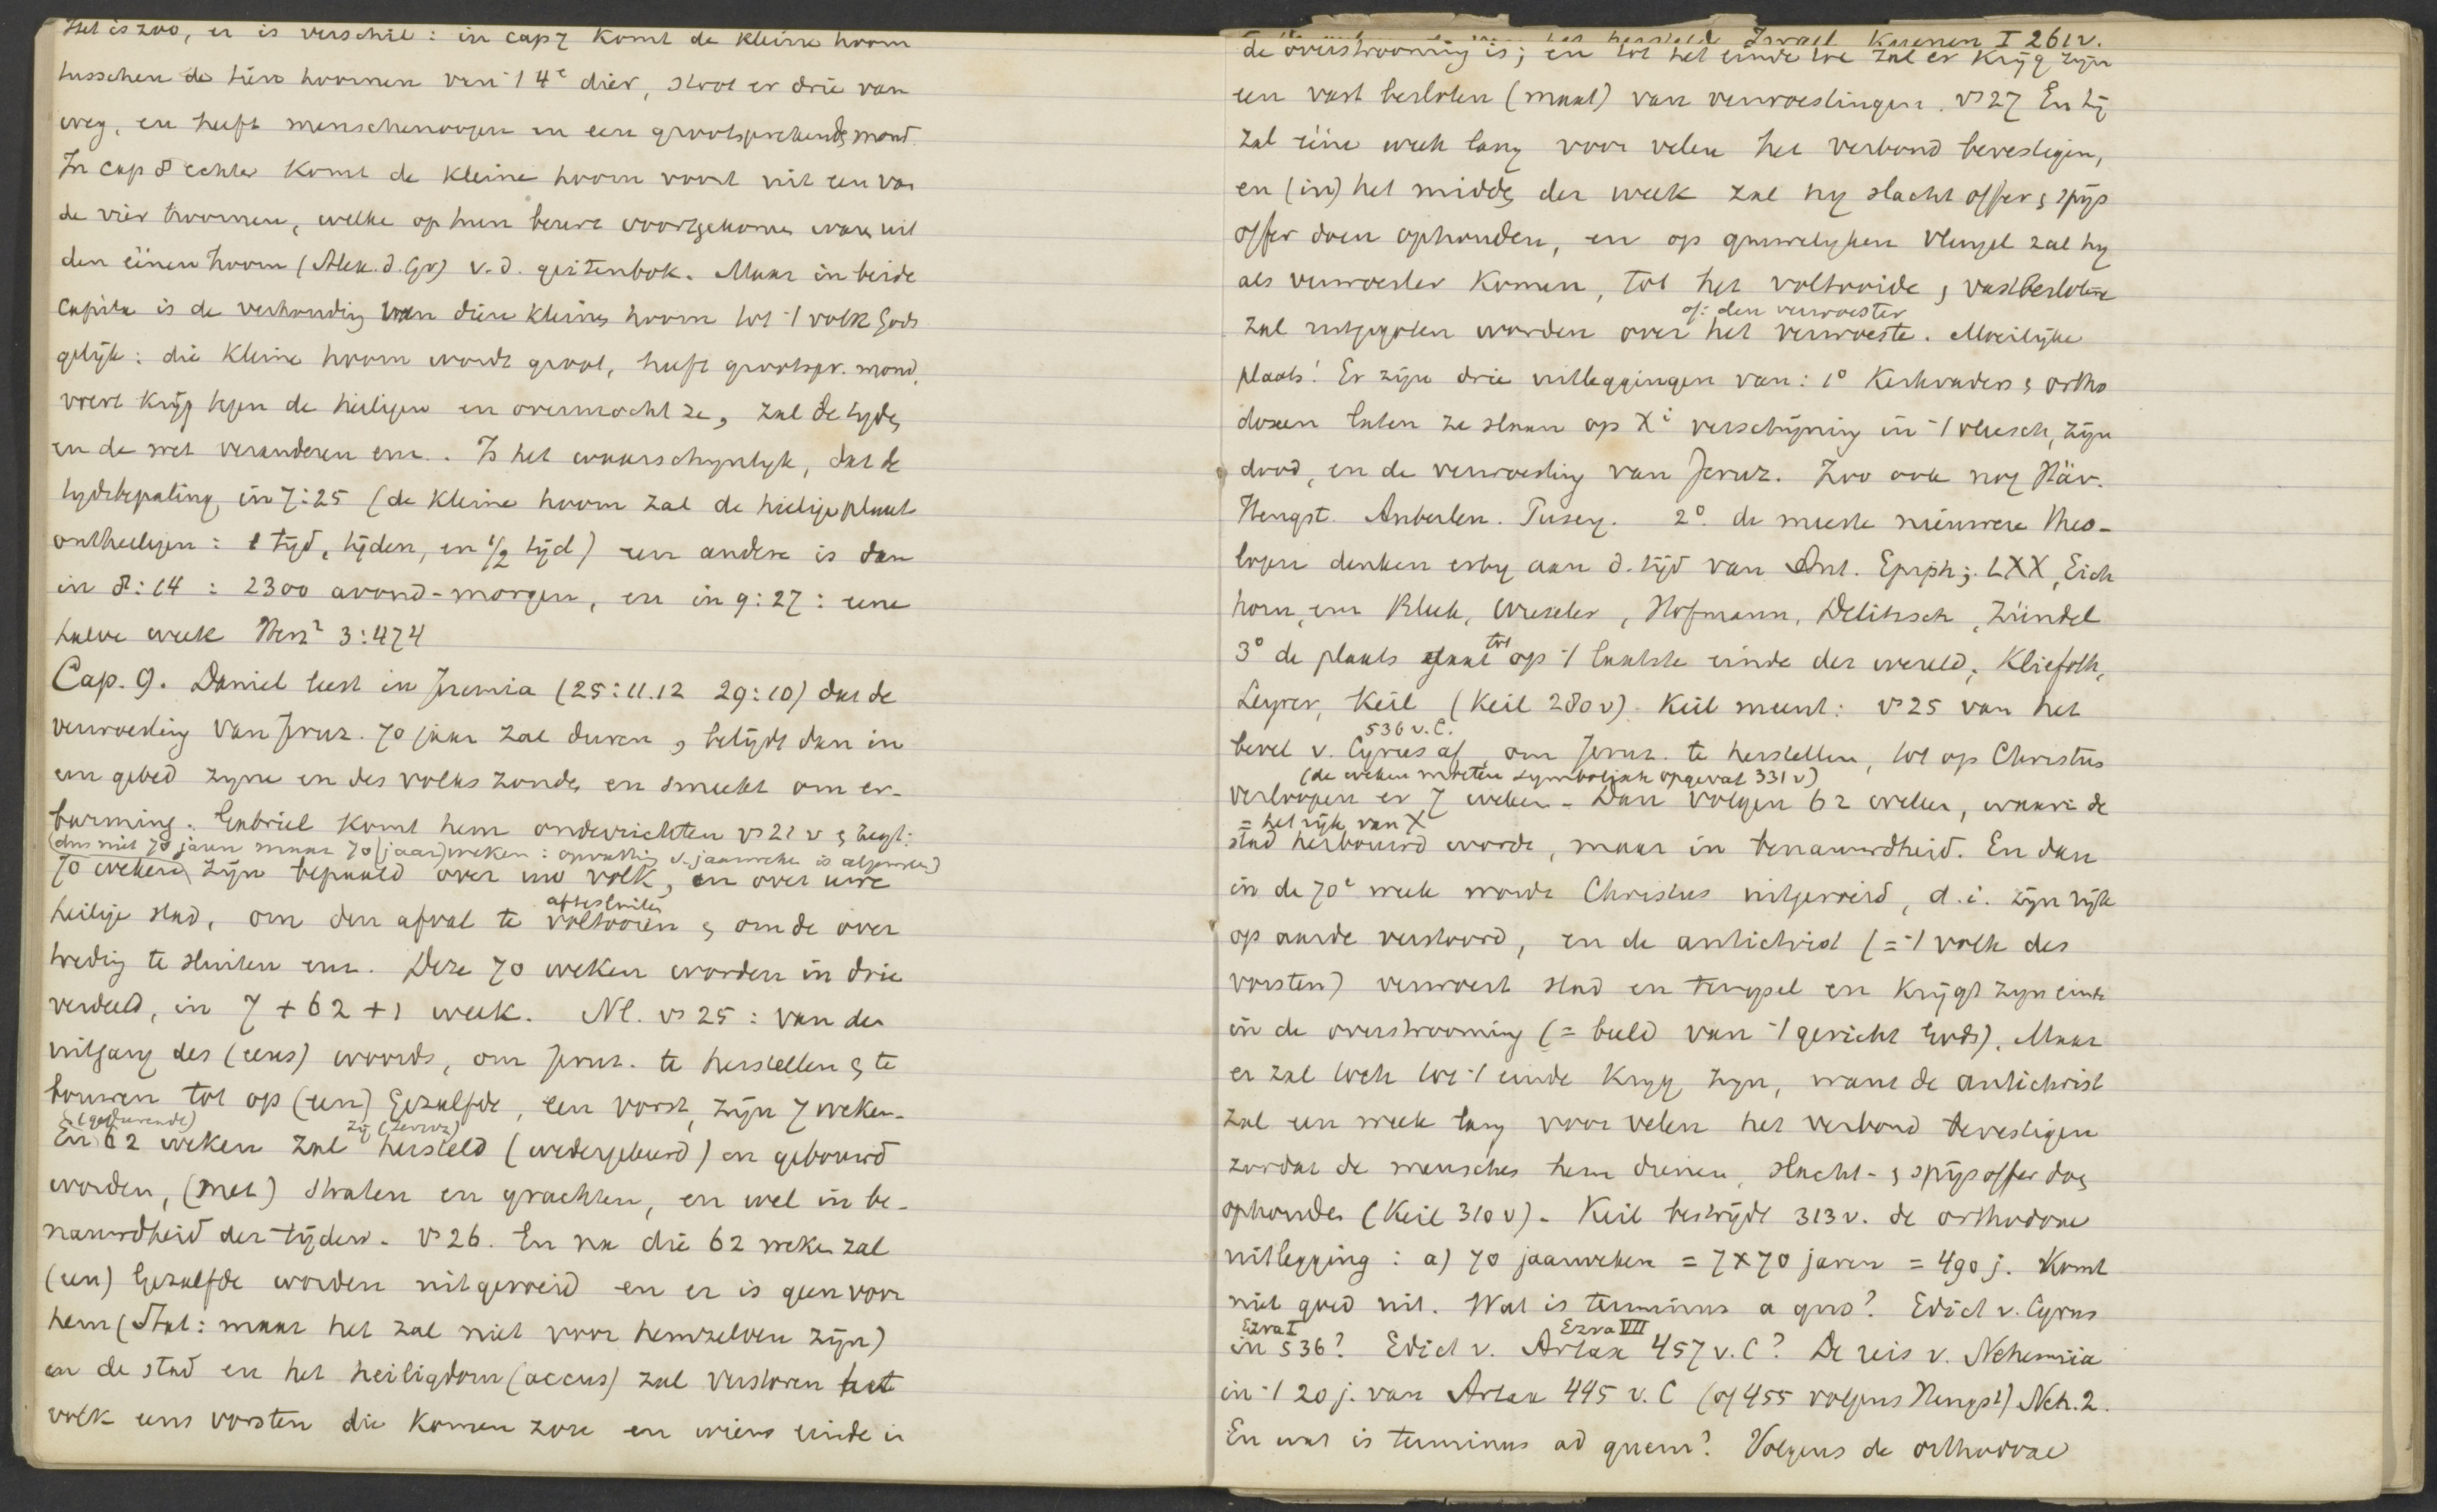 Het is zoo, er is verschil: in cap 7 komt de kleine hoorn
tusschen de tien hoornen van 't 4e dier, stoot er drie van
weg, en heeft menschenoogen en een grootsprekende mond.
In cap 8 echter komt de kleine hoorn voort uit een van
de vier hoornen, welke op hun beurt voortgekomen waren uit
den éénen hoorn (Alex. d. Gr) v. d. geitenbok. Maar in beide
capita is de verhouding van dien kleinen hoorn tot 't volk Gods
gelijk: die kleine hoorn wordt groot, heeft grootspr. mond,
voert krijg tegen de heiligen en overmocht ze, zal de tyden
en de wet veranderen enz. Is het waarschynlyk, dat de
tydsbepaling in 7:25 (de kleine hoorn zal de heilige plaats
ontheiligen: 1 tijd, tijden, en 1/2 tijd) een andere is dan
in 8:14: 2300 avond-morgen, en in 9:27: eene
halve week Herz² 3:474
Cap. 9. Daniel leest in Jeremia (25:11.12 29:10) dat de
verwoesting van Jeruz. 70 jaar zal duren, belijdt dan in
een gebed zyne en des volks zonde, en smeekt om er-
barming. Gabriel komt hem onderrichten vs 21 v & zegt:
(dus niet 70 jaren maar 70 (jaar)weken: opvatting v. jaarweke is algemeen)
70 weken zijn bepaald over uw volk, en over uwe
afsluiten
heilige stad, om den afval te voltooien & om de over
treding te sluiten enz. Deze 70 weken worden in drie
verdeeld, in 7 + 62 + 1 week. Nl. vs 25: van den
uitgang des (eens) woords, om Jeruz. te herstellen & te
bouwen tot op (een) Gezalfde, een vorst, zijn 7 weken.
(gedurende) zij (Jeruz)
En 62 weken zal hersteld (wedergebeurd) en gebouwd
worden, (met) straten en grachten, en wel in be-
nauwdheid der tijden. vs 26. En na die 62 weken zal
(een) Gezalfde worden uitgeroeid en er is geen voor
hem (Stat: maar het zal niet voor hemzelven zijn)
en de stad en het heiligdom (accus) zal verstoren het
volk eens vorsten die komen zou en wiens einde in
Israel Kuenen I 261v.
de overstrooming is; en tot het einde toe zal er krijg zijn
een vast besloten (maat) van verwoestingen. vs 27 En hij
zal eéne week lang voor velen het verbond bevestigen,
en (in) het midden der week zal hy slachtoffer & spijs
offer doen ophouden, en op gruwelyken vleugel zal hy
als verwoester komen, tot het voltooide & vastbeslotene
of: den verwoester
zal uitgegoten worden over het verwoeste. Moeilijke
plaats! Er zijn drie uitleggingen van: 1° Kerkvaders & ortho
doxen laten ze slaan op Xi verschijning in 't vleesch, zijn
dood, en de verwoesting van Jeruz. Zoo ook nog Häv.
Hengst. Auberlen. Pusey. 2° de meeste nieuwere theo-
logen denken erby aan d. tijd van Ant. Epiph; LXX, Eich
horn, enz Bleek, Wieseler, Hofmann, Delitzsch, Zündel
tot
3° de plaats slaat op 't laatste einde der wereld; Kliefoth,
Leyrer, Keil (Keil 280v). Keil meent: vs 25 van het
536 v. C.
bevel v. Cyrus af, om Jeruz. te herstellen, tot op Christus
(de weken moeten symbolisch opgevat 331v)
verloopen er 7 weken. Dan volgen 62 weken, waarin de
= het rijk van X
stad herbouwd wordt, maar in benauwdheid. En dan
in de 70e week wordt Christus uitgeroeid, d.i. zijn rijk
op aarde verstoord, en de antichrist (= 't volk des
vorsten) verwoest stad en tempel en krijgt zyn einde
in de overstrooming (= beeld van 't gericht Gods). Maar
er zal toch tot 't einde kryg zyn, want de antichrist
zal een week lang voor velen het verbond bevestigen
zoodat de menschen hem dienen, slacht- & spijsoffer doen
ophouden (Keil 310v). Keil bestrijdt 313v. de orthodoxe
uitlegging: a) 70 jaarweken = 7 x 70 jaren = 490 j. komt
niet goed uit. Wat is terminus a quo? Edict v. Cyrus
Ezra I Ezra VII
in 536? Edict v. Artax 457 v. C? De reis v. Nehemia
in 't 20 j. van Artax 445 v. C (of 455 volgens Hengst) Neh. 2.
En wat is terminus ad quem? Volgens de orthodoxe